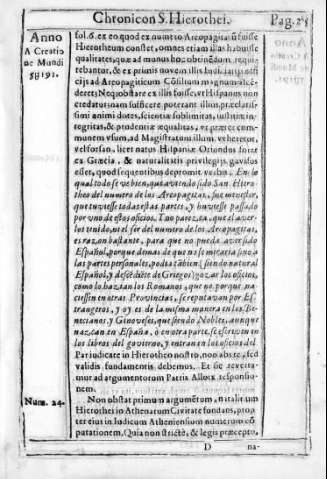 Chronicon S. Hierothei.
Pag. 25
Anno
A Creatio
ne Mundi
5919 1.
fol. 6. ex eo quod ex numero Areopagitarũ fuisse
Hierotheum constet, omnes etiam illas habuisse
qualitates, quæ ad munus hoc obtinẽdum requi-
rebantur, & ex primis novem illis Iudicatus offi
cijs ad Areopagiticum Cõsilium magnum asce
deret; Neq; obstare ex illis fuisse, ut Hispanus non
credatur; nam sufficere poterant illius præclaris-
simi animi dotes, scientiæ sublimitas, iustitiæ in-
tegritas, & prudentiæ æqualitas, ut præter com-
munem usum, ad Magistratum illum veheretur,
vel forsan, licet natus Hispaniæ Oriundus foret
ex Græcia, & naturalitatis privilegijs gavisus
esset, quod sequentibus depromit verbis. En lo
qual todo se ve bien, que aviendo sido San Hiero-
theo del numero de los Areopagitas, fue menester,
que tuviesse todas estas partes, y huviesse passado
por uno de estos oficios. Tan poco ra, que el aver-
los tenido, ni el ser del numero de los Areopagitas,
es razon bastante, para que no pueda aver sido
Español, porque demas de que no se miraria sino a
las partes personales, podia tãbien (siendo natural
Español, y descẽdiẽte de Griegos) gozar los oficios,
como lo hazian los Romanos, que no porque na-
ciessen en otras Provincias, se reputavan por Es-
trangeros, y oy es de la misma manera en los Be-
necianos, y Ginoveses, que siendo Nobles, aunque
nazcan en España, ò en otra parte, se escriven en
los libros del govierno, y entran en los oficios del
Pariudicate in Hierotheo nostro, non abs re, sed
validis fundamentis debemus. Et sic revertamur
ad argumentorum Patris
Num. 24.
Non obstat primum argumẽtum, natalirium
Hierothei in Athenarum Civitate fundans, prop
ter eius in Iudicum Atheniensium numerum cõ
putationem. Quia non strictè, & legis præcepto,
D
na-